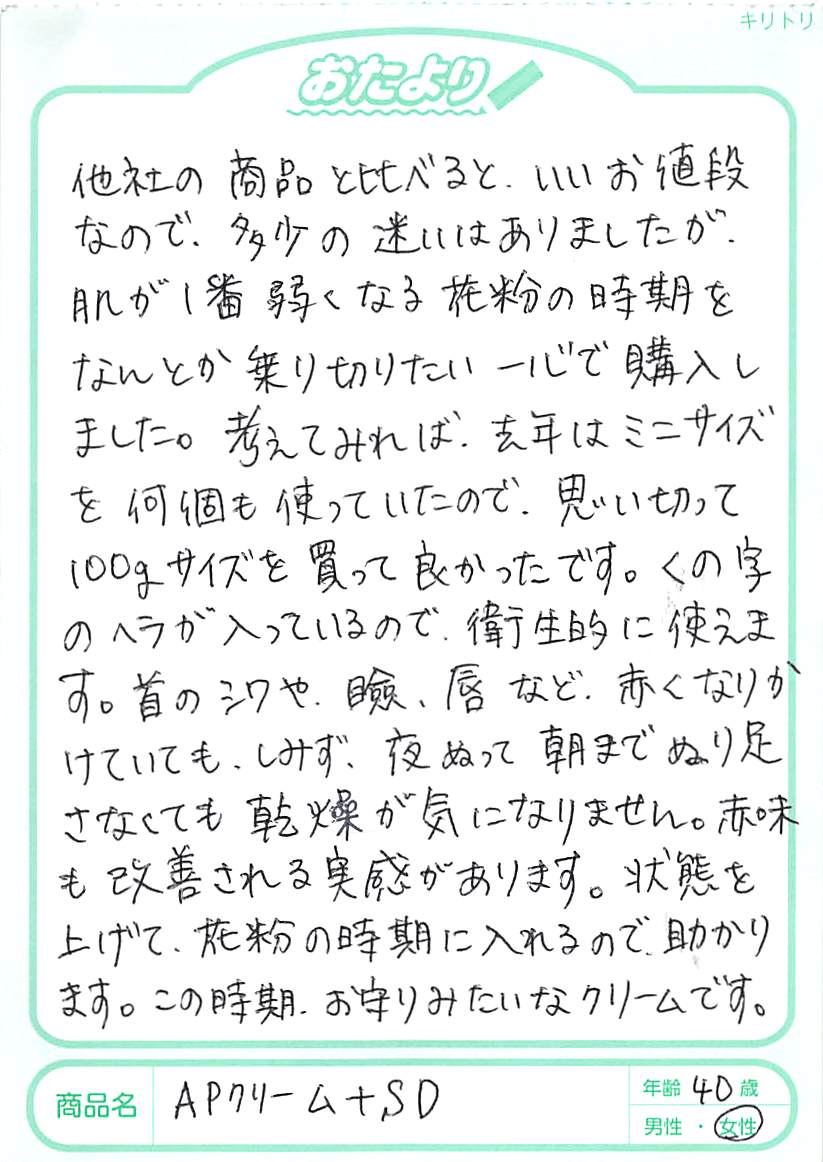 キリトリ
おたより
他社の商品と比べると、いいお値段
なので、多少の迷いはありましたが、
肌が1番弱くなる花粉の時期を
なんとか乗り切りたい一心で購入し
ました。考えてみれば、去年はミニサイズ
を何個も使っていたので、思い切って
100gサイズを買って良かったです。くの字
のヘラが入っているので、衛生的に使えま
す。首のシワや、瞼、唇など、赤くなりか
けていても、しみず、夜ぬって朝までぬり足
さなくても乾燥が気になりません。赤味
も改善される実感があります。状態を
上げて、花粉の時期に入れるので、助かり
ます。この時期、お守りみたいなクリームです。
商品名 APクリーム+,SD
年齢 40 歳
男性 ・ 女性